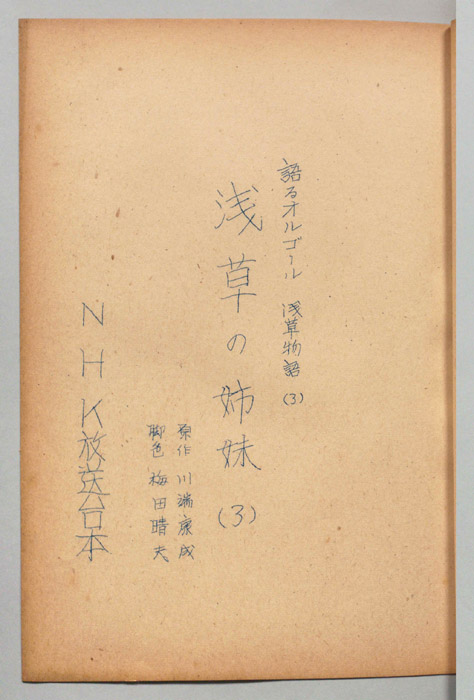 語るオルゴール 浅草物語(3)
浅草の姉妹(3)
原作 川端康成
脚色 梅田晴夫
NHK放送台本